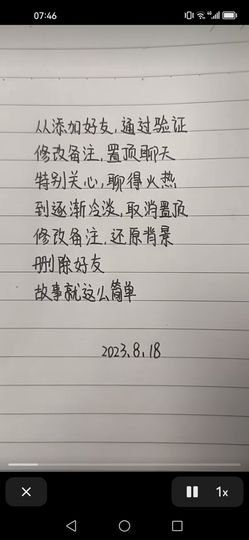 07:46
从添加好友,通过验证
修改备注,置顶聊天
特别关心,聊得火热
到逐渐冷淡,取消置顶
修改备注,还原背景
删除好友
故事就这么简单
2023.8.18
1x